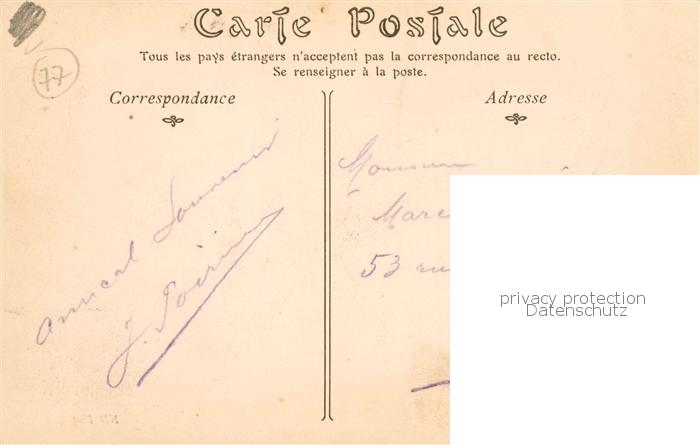 77
Carte Postale
Tous les pays étrangers n'acceptent pas la correspondance au recto.
Se renseigner à la poste.
Correspondance
Adresse
Amical Souvenir
J.
Monsieur
Marc
53 rue
privacy protection
Datenschutz